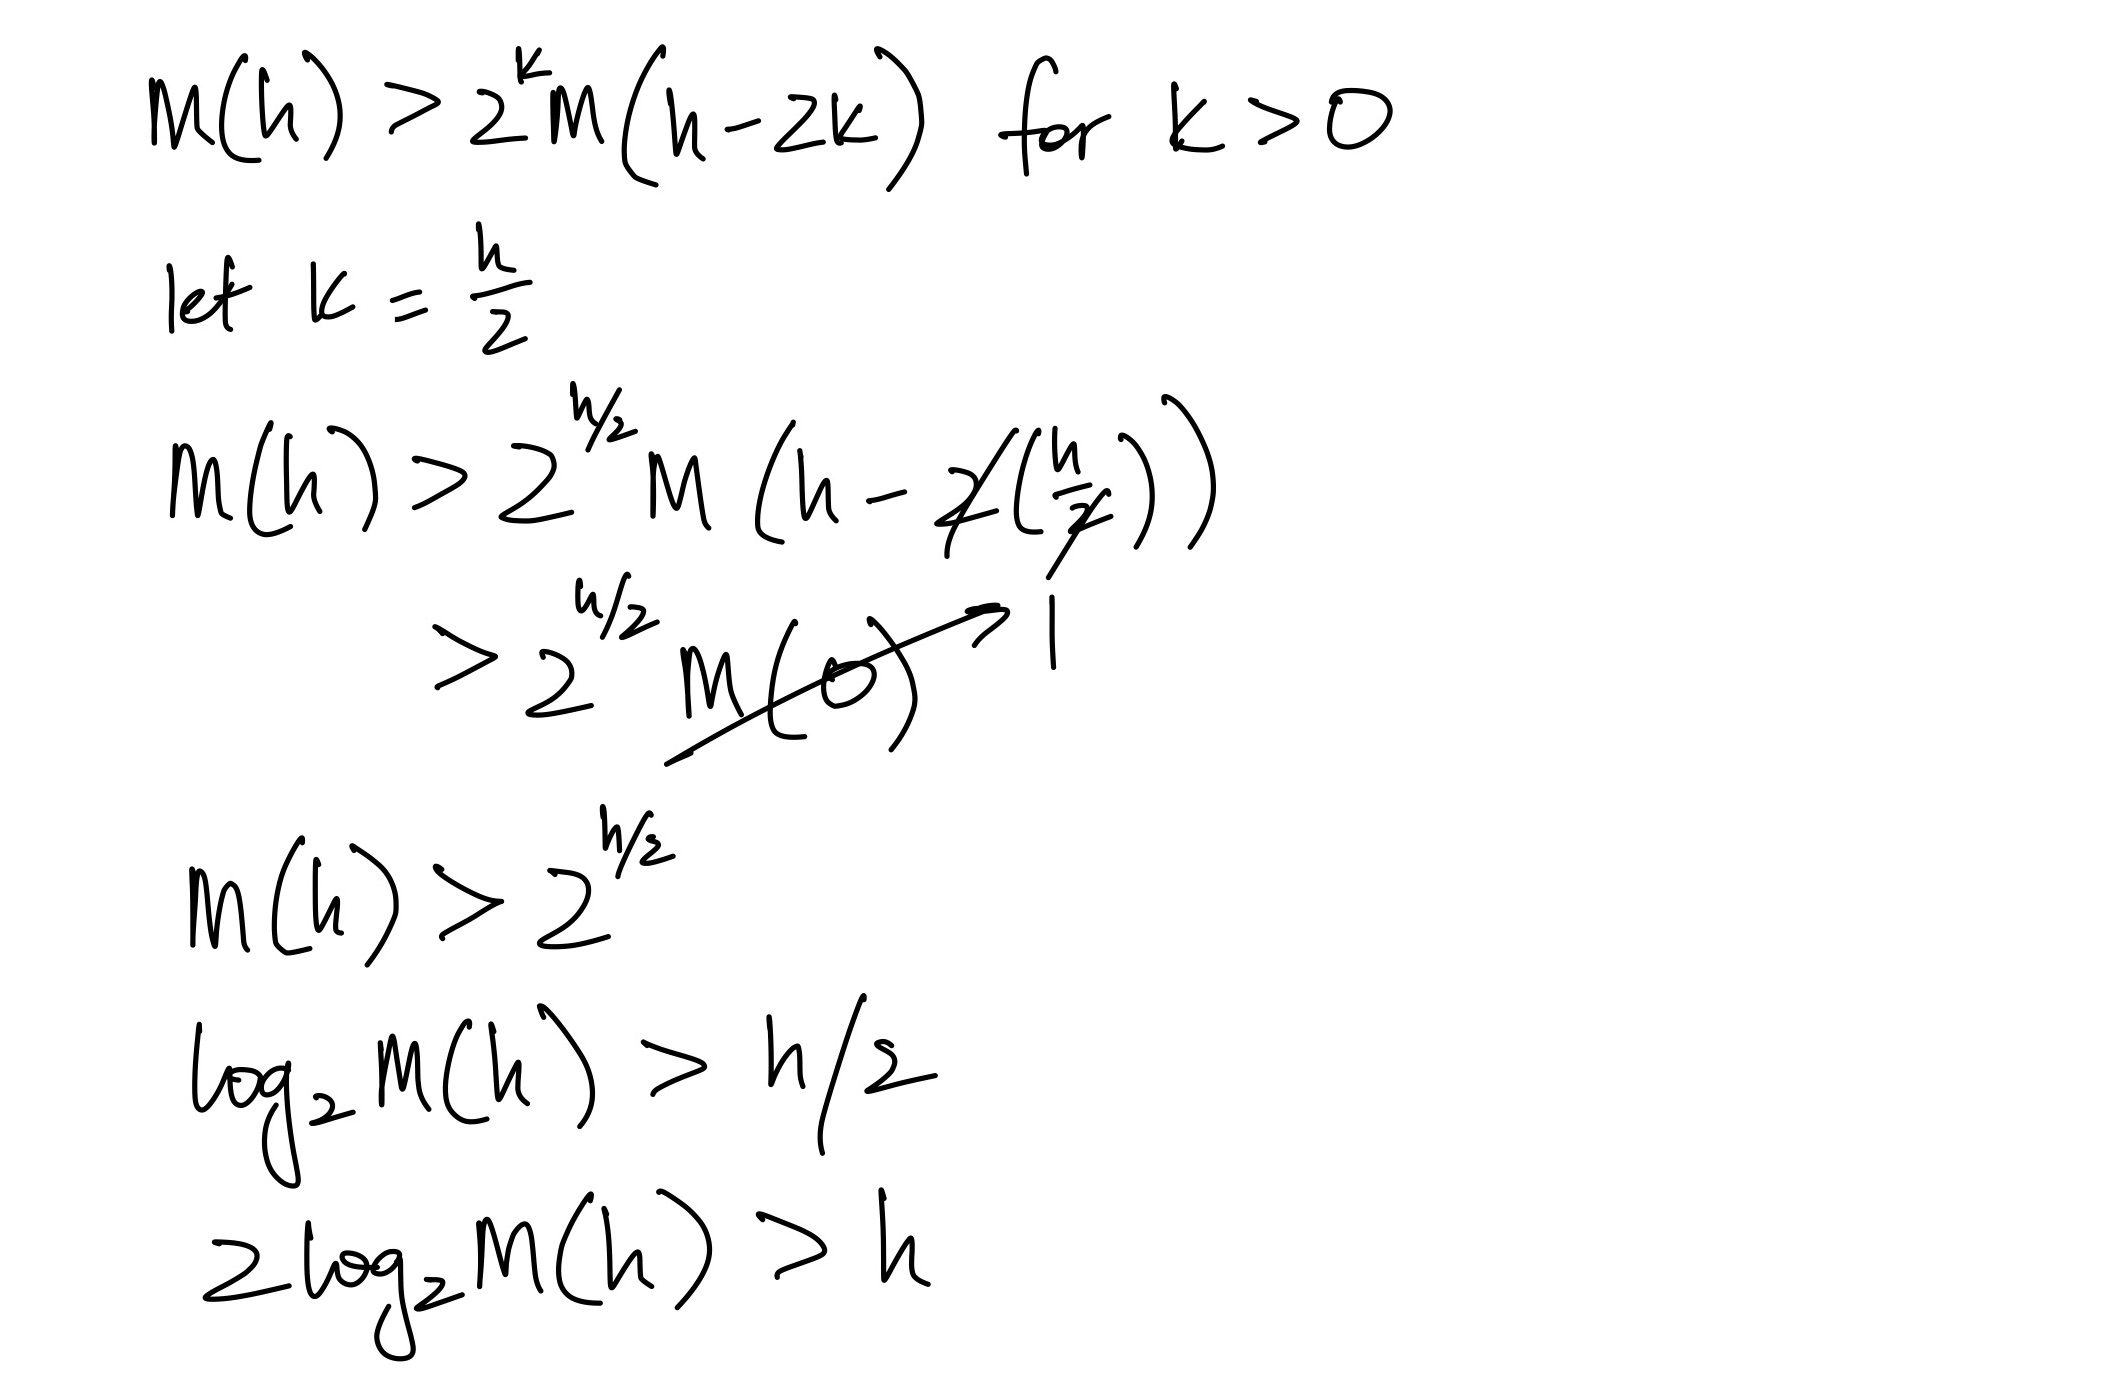 M(h) > 2^k M(h-2k) for k>0
let k = h/2
M(h) > 2^{h/2} M(h - 2(h/2))
> 2^{h/2} M(0) → 1
M(h) > 2^{h/2}
log_2 M(h) > h/2
2log_2 M(h) > h